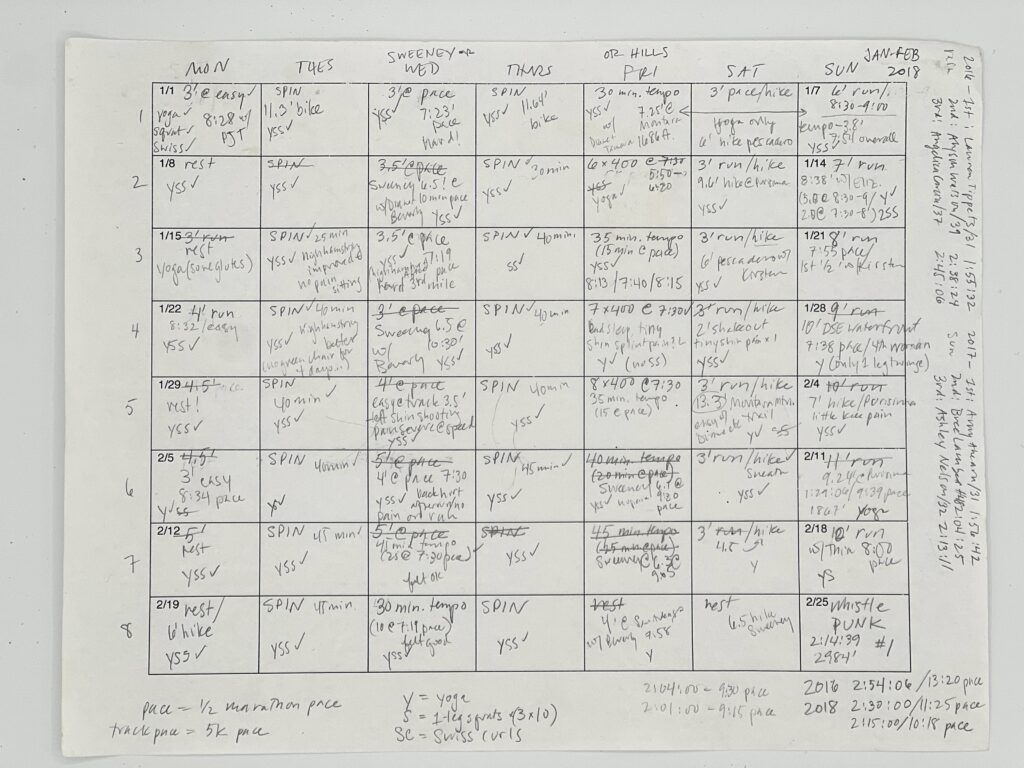 SWEENEY or
OR HILLS
JAN-FEB
2018
MON TUES WED THURS FRI SAT SUN
1
1/1 3' @ easy ✓
yoga ✓ 8:28 w/
squat ✓ PJT
Swiss ✓
SPIN
11.3' bike
YSS ✓
3' @ pace
YSS ✓ 7:23'
pace
Hard!
SPIN
YSS ✓ 11.64'
bike
30 min. tempo
YSS ✓ 7.25' @
w/ Montara
1686 ft.
3' pace/hike
yoga only
6' hike pescadero
1/7 6' run/
8:30-9:00
tempo - 3.8'
7:54 overall
YSS ✓
2
1/8 rest
YSS ✓
SPIN
YSS ✓
3.5' @ pace
Sweeney 6.5! @
10 min pace
Beverly YSS ✓
SPIN ✓ 30 min
YSS ✓
6 x 400 @ 7:30
YSS 5:50-
yoga ✓ 6:20
3' run/hike
9.6' hike @ Purisima
YSS ✓
1/14 7' run
8:38' w/ Eliz.
(5.0 @ 8:30-9/ Y ✓
2.0 @ 7:30-8') 2SS
3
1/15 3' run
rest
yoga (sore glutes)
SPIN ✓ 25 min
YSS ✓ high hamstring
improved
no pain
sitting
3.5' @ pace
YSS ✓ 7:19
high hamstring pace
hard 3rd mile
SPIN ✓ 40 min.
SS ✓
35 min. tempo
(15 min @ pace)
YSS ✓
8:13 / 7:40 / 8:15
3' run/hike
6' pescadero w/
Kirsten
YSS ✓
1/21 8' run
7:55 pace
1st 1/2 w/ Kirsten
4
1/22 4' run
8:32 / easy
YSS ✓
SPIN ✓ 40 min
YSS ✓ high hamstring
better
(no green chair for
4 days...)
3' @ pace
Sweeney 6.5 @
w/ 10:30'
Beverly YSS ✓
SPIN ✓ 40 min
YSS ✓
7 x 400 @ 7:30 ✓
Bad sleep, tiny
shin splint pain! L
Y ✓ (no SS)
3' run/hike
2' shakeout
tiny shin pain!
YSS ✓
1/28 9' run
10' DSE waterfront
7:38 pace / 4th woman
Y (only 1 leg lunge)
5
1/29 4.5'
rest!
YSS ✓
SPIN
40 min ✓
YSS ✓
4' @ pace
easy @ track 3.5'
left shin shooting
pain severe @ speed
YSS ✓
SPIN 40 min
YSS ✓
8 x 400 @ 7:30
35 min. tempo
(15 @ pace)
3' run/hike
13.3' Montara Mtn.
easy @ trail
YV SS
2/4 10' run
7' hike / Purisima
little knee pain
YSS ✓
6
2/5 4.5'
3' easy
8:34 pace
Y ✓ SS
SPIN 40 min ✓
Y ✓
5' @ pace
4' @ pace 7:30
YSS ✓ back hurt
afterward/no
pain on run
SPIN 45 min ✓
YSS ✓
40 min. tempo
(20 min @ pace)
Sweeney 6.5 @
YSS ✓ no pain 9:30
pace
3' run/hike ✓
YSS ✓
2/11 11' run
9.24 @
1:29:06 / 9:39 pace
1867' yoga
7
2/12 5'
rest
YSS ✓
SPIN 45 min ✓
YSS ✓
5' @ pace
45 min. tempo
(25 @ 7:30 pace) ✓
felt ok
SPIN
YSS ✓
45 min. tempo
(25 min @ pace)
Sweeney @ 6.5 @
9:05
3' run/hike
4.5
Y
2/18 12' run
w/ Thin 8:00
pace
YS
8
2/19 rest/
6' hike
YSS ✓
SPIN 45 min.
YSS ✓
30 min. tempo
(10 @ 7:19 pace)
felt good
YSS ✓
SPIN
YSS ✓
rest
4' @
w/ Beverly 9:58
Y
rest
6.5 hike
Sweeney
2/25 Whistle
PUNK
2:14:39
2984' #1
pace = 1/2 marathon pace
track pace = 5K pace
Y = yoga
S = 1-leg squats (3x10)
SC = Swiss curls
2:04:00 - 9:30 pace
2:01:00 - 9:15 pace
2016 2:54:06 / 13:20 pace
2018 2:30:00 / 11:25 pace
2:15:00 / 10:18 pace
2016 - 1st: Lauren Tippets/31 1:55:32
2nd: Alyson Weiss/39 2:38:24
3rd: Angelica Garcia/37 2:45:06
2017 - 1st: Amy Ahearn/31 1:56:42
2nd: 2:04:25
3rd: Ashley Nelson/32 2:13:11